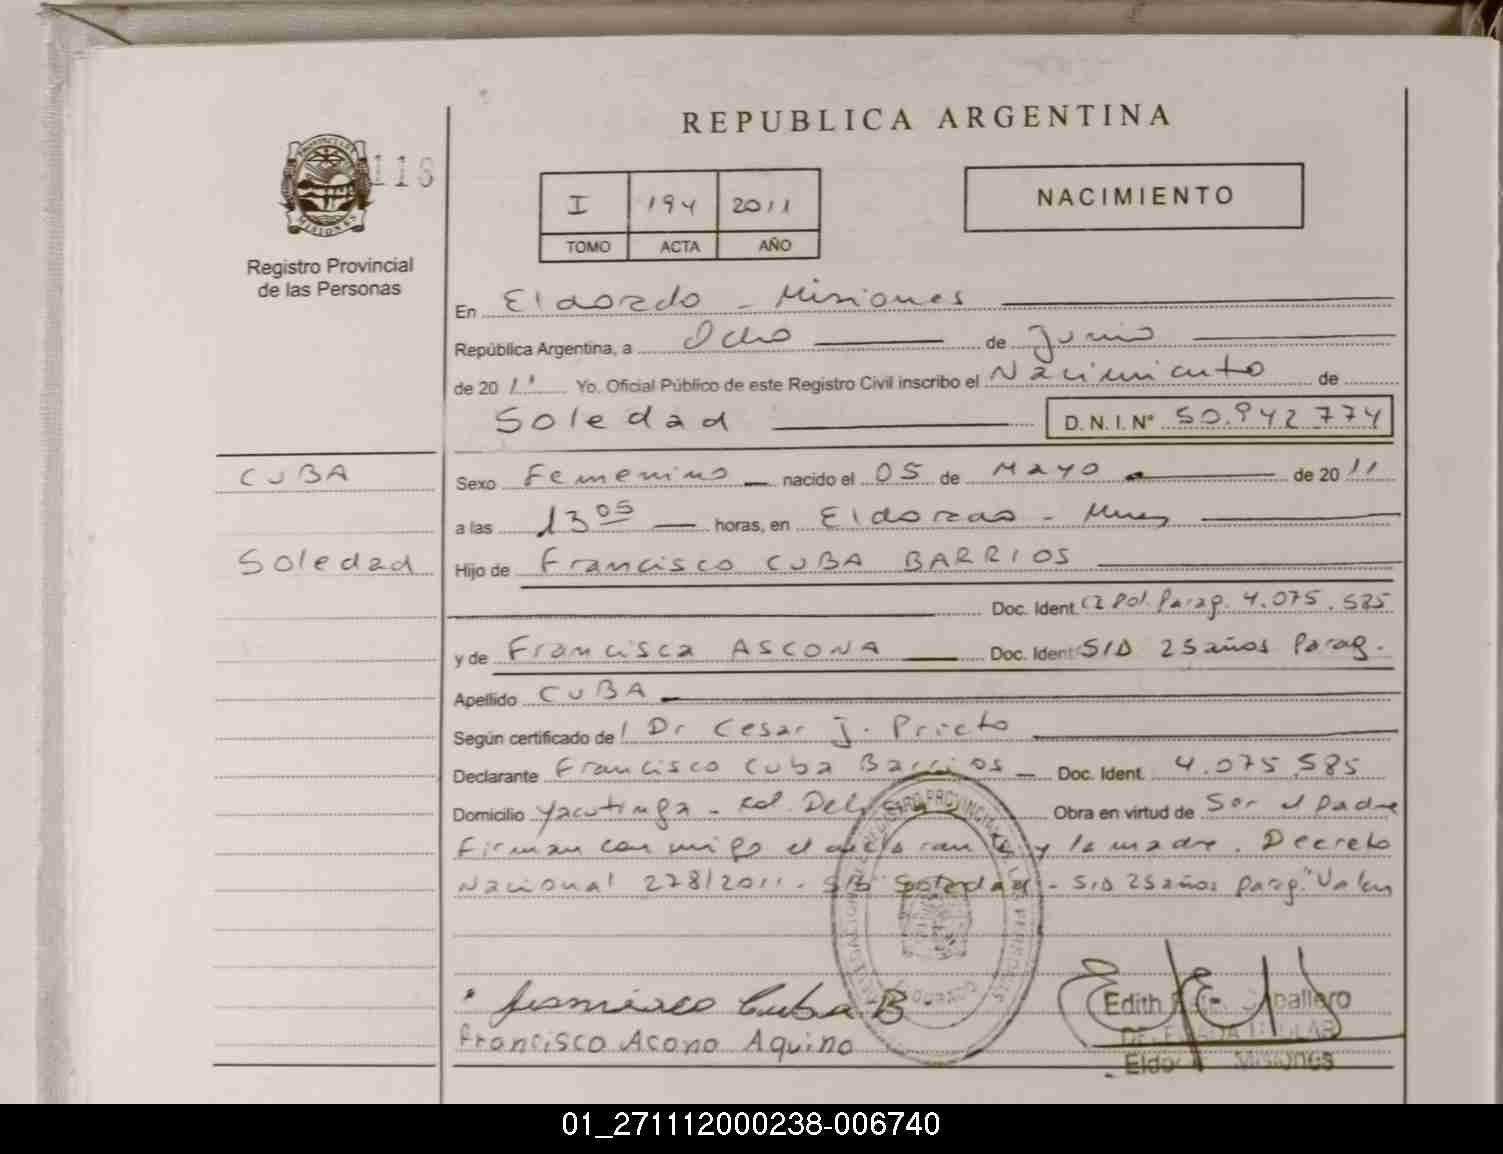 REPUBLICA ARGENTINA
116
I 194 2011
TOMO ACTA AÑO
NACIMIENTO
Registro Provincial
de las Personas
En Eldorado - Misiones
República Argentina, a Ocho de Junio
de 2011 Yo. Oficial Público de este Registro Civil inscribo el Nacimiento de
Soledad D.N.I. Nº 50.942.774
CUBA
Sexo Femenino nacido el 05 de Mayo de 2011
a las 13 05 horas, en Eldorado - Mnes
Soledad
Hijo de Francisco CUBA BARRIOS
Doc. Ident. CI Pol. Parag. 4.075.585
y de Francisca ASCONA Doc. Ident. S/D 25 años Parag.
Apellido CUBA
Según certificado de Dr Cesar J. Prieto
Declarante Francisco Cuba Barrios Doc. Ident. 4.075.585
Domicilio Yacutinga - Col. Obra en virtud de Ser el padre
Firman conmigo el declarante y la madre. Decreto
Nacional 278/2011 - S/B "Soledad - S/D 25 años parag." Valen
Francisco Cuba B
Francisco Acono Aquino
Edith Caballero
DELEGADA TITULAR
Eldorado Misiones
01_271112000238-006740